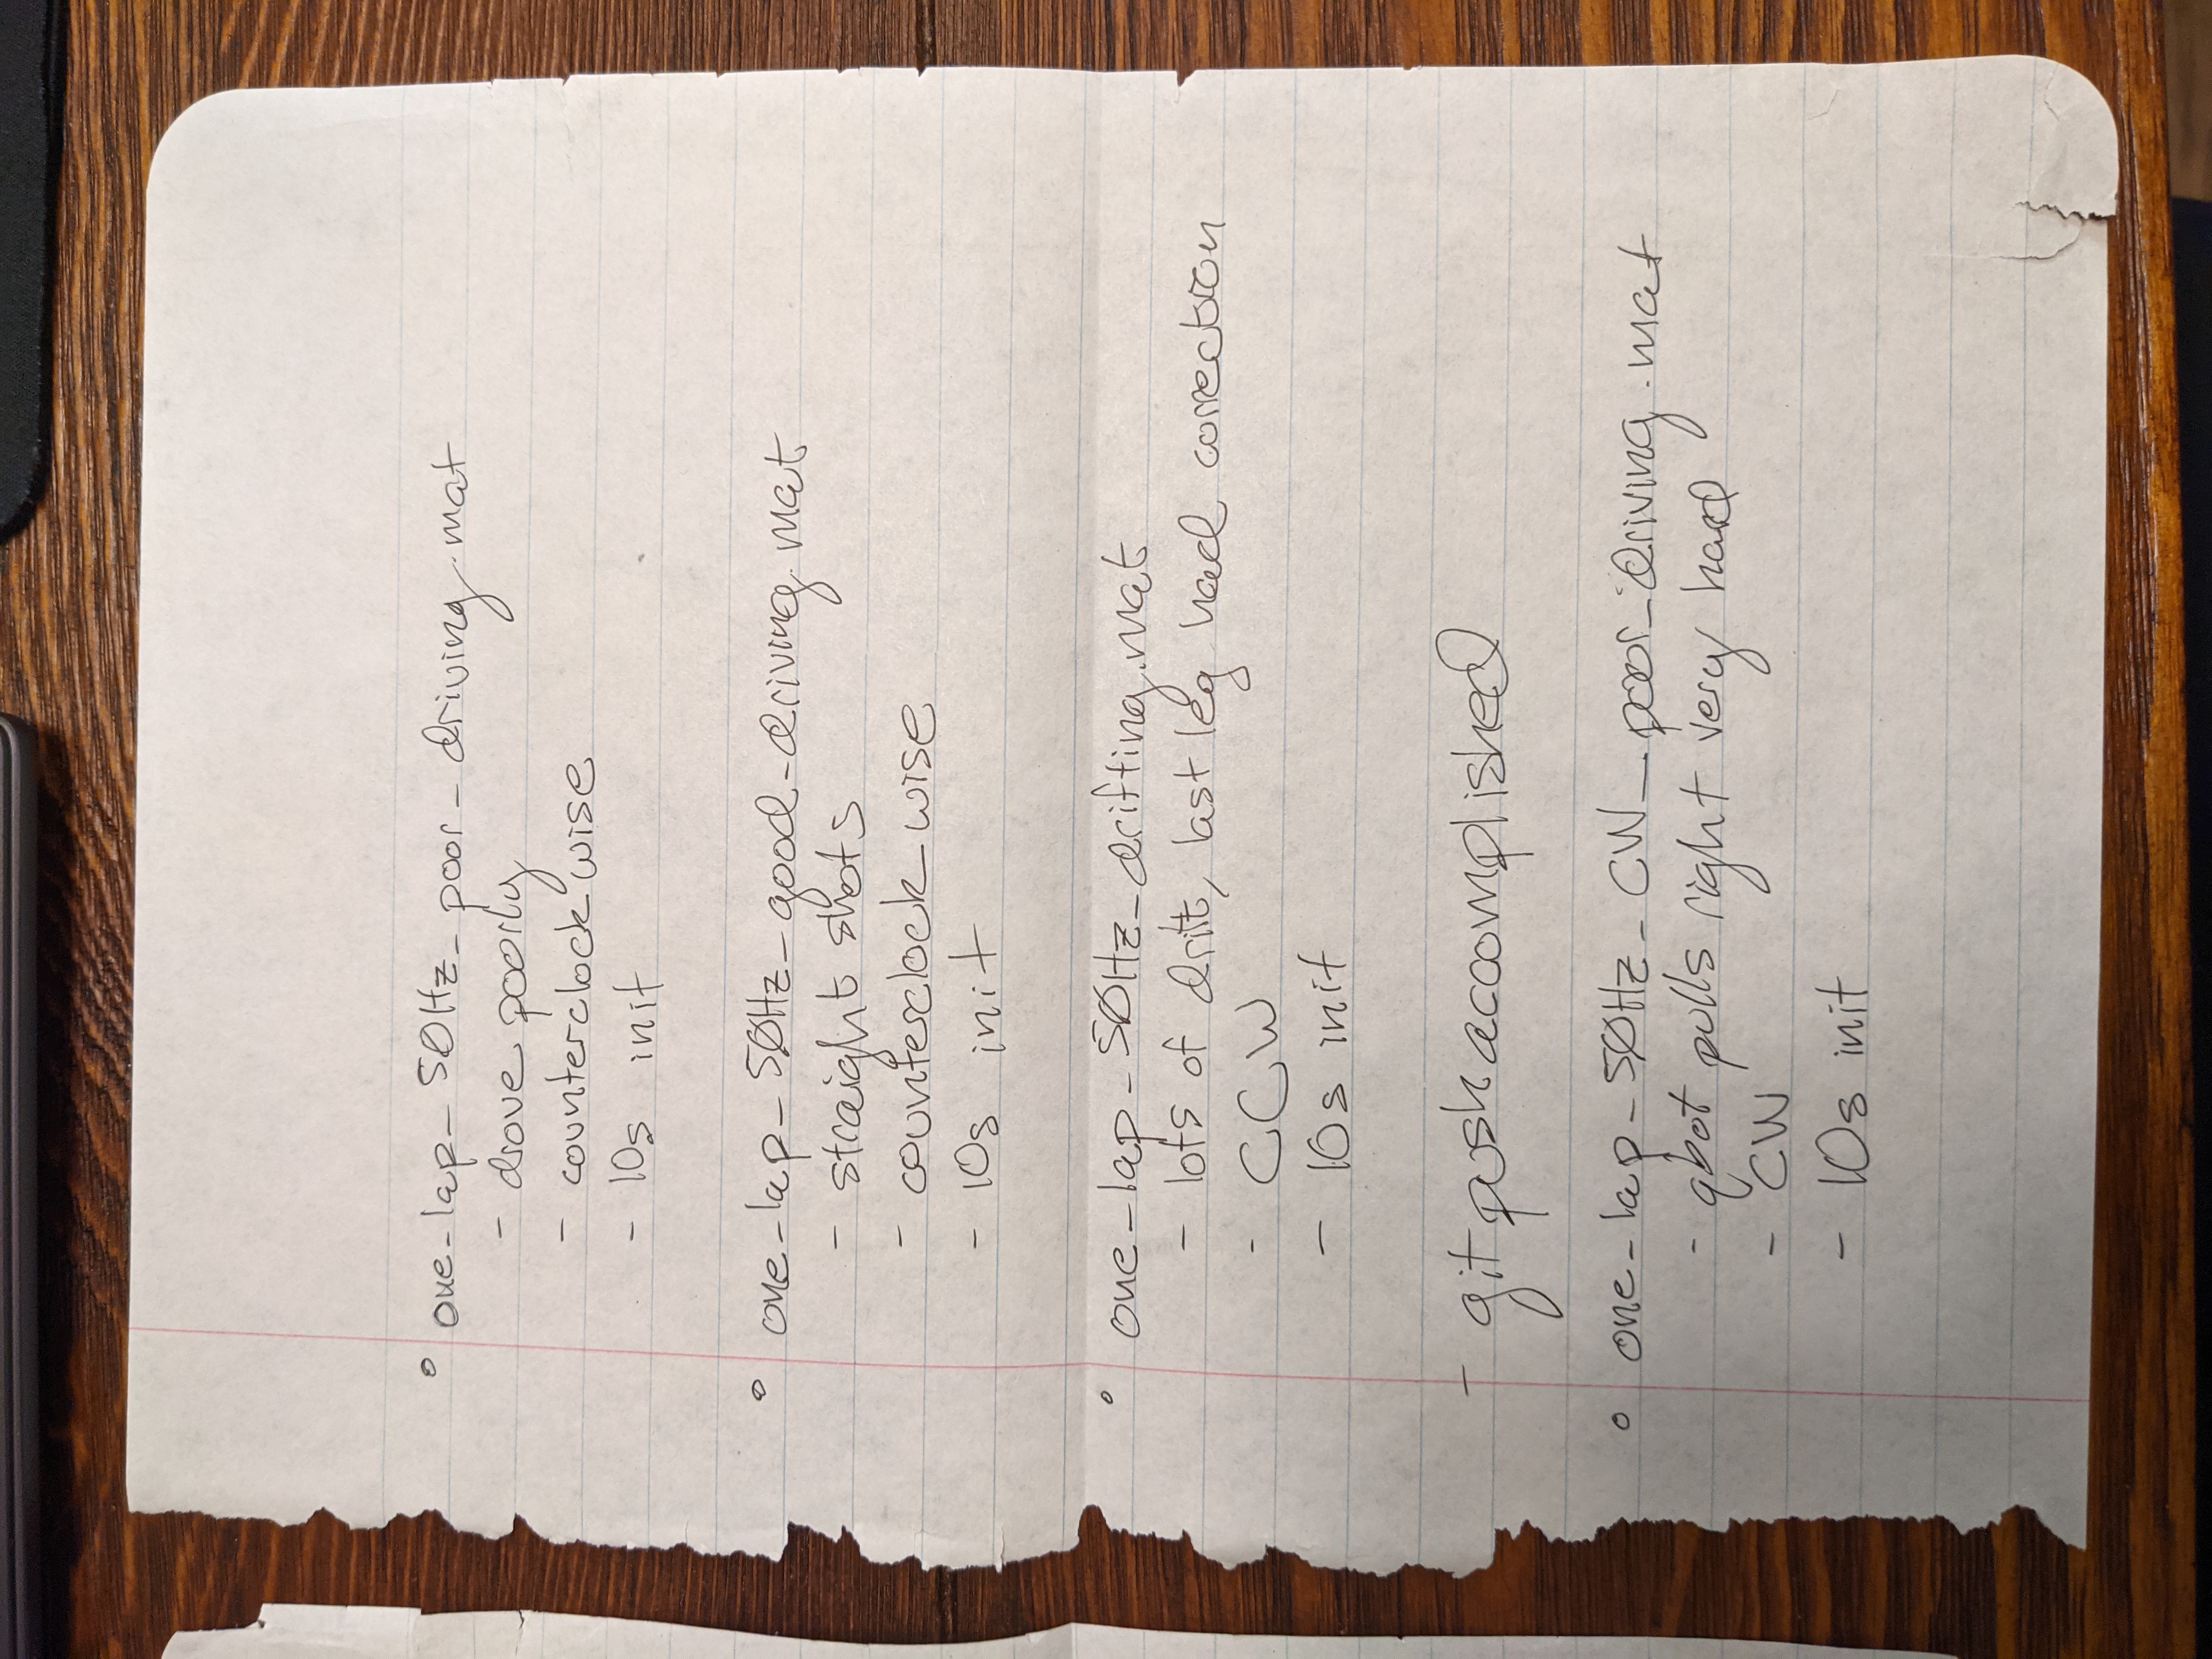 ° one-lap-50Hz-poor-driving.mat
- drove poorly
- counterclockwise
- 10s init
° one-lap-50Hz-good-driving.mat
- straight shots
- counterclockwise
- 10s init
° one-lap-50Hz-drifting.mat
- lots of drift, last leg hard correction
- CCW
- 10s init
- git push accomplished
° one-lap-50Hz-CW-poor-driving.mat
- qbot pulls right very hard
- CW
- 10s init